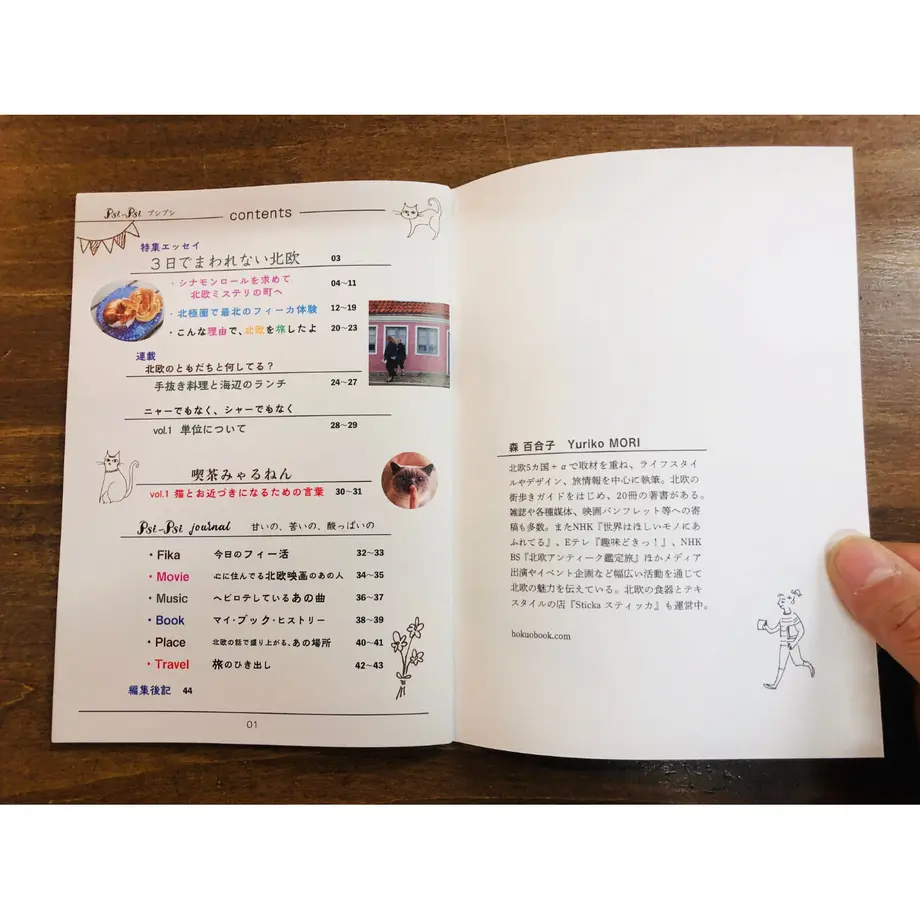 Pst-Pst プシプシ
contents
特集エッセイ
3日でまわれない北欧 03
・シナモンロールを求めて
北欧ミステリの町へ 04〜11
・北極圏で最北のフィーカ体験 12〜19
・こんな理由で、北欧を旅したよ 20〜23
連載
北欧のともだちと何してる？
手抜き料理と海辺のランチ 24〜27
ニャーでもなく、シャーでもなく
vol.1 単位について 28〜29
喫茶みゃるねん
vol.1 猫とお近づきになるための言葉 30〜31
Pst-Pst journal 甘いの、苦いの、酸っぱいの
・Fika 今日のフィー活 32〜33
・Movie 心に住んでる北欧映画のあの人 34〜35
・Music ヘビロテしているあの曲 36〜37
・Book マイ・ブック・ヒストリー 38〜39
・Place 北欧の話で盛り上がる、あの場所 40〜41
・Travel 旅のひき出し 42〜43
編集後記 44
01
森 百合子 Yuriko MORI
北欧5カ国+αで取材を重ね、ライフスタイ
ルやデザイン、旅情報を中心に執筆。北欧の
街歩きガイドをはじめ、20冊の著書がある。
雑誌や各種媒体、映画パンフレット等への寄
稿も多数。またNHK『世界はほしいモノにあ
ふれてる』、Eテレ『趣味どきっ！』、NHK
BS『北欧アンティーク鑑定旅』ほかメディア
出演やイベント企画など幅広い活動を通じて
北欧の魅力を伝えている。北欧の食器とテキ
スタイルの店『Sticka スティッカ』も運営中。
hokuobook.com